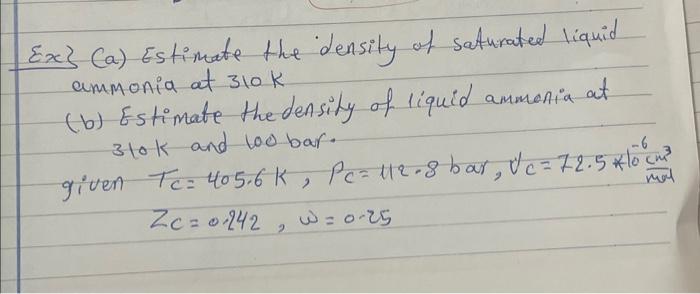 Ex} (a) Estimate the density of saturated liquid
ammonia at 310 K
(b) Estimate the density of liquid ammonia at
310k and 100 bar.
given Tc = 405.6 K, Pc = 112.8 bar, Vc = 72.5 *10^-6 cm³/mol
Zc = 0.242, ω = 0.25